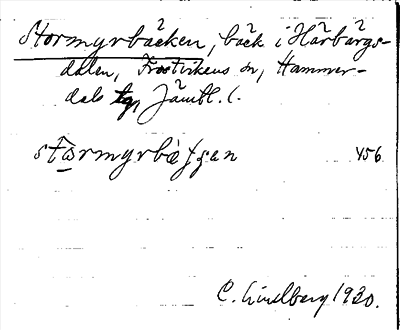 Stormyrbäcken, bäck i Härbärgs-
dalen, Frostvikens sn, Hammer-
dals tg, Jämtl. l.
stormyrbäʃʃen 456
C. Lindberg 1930.